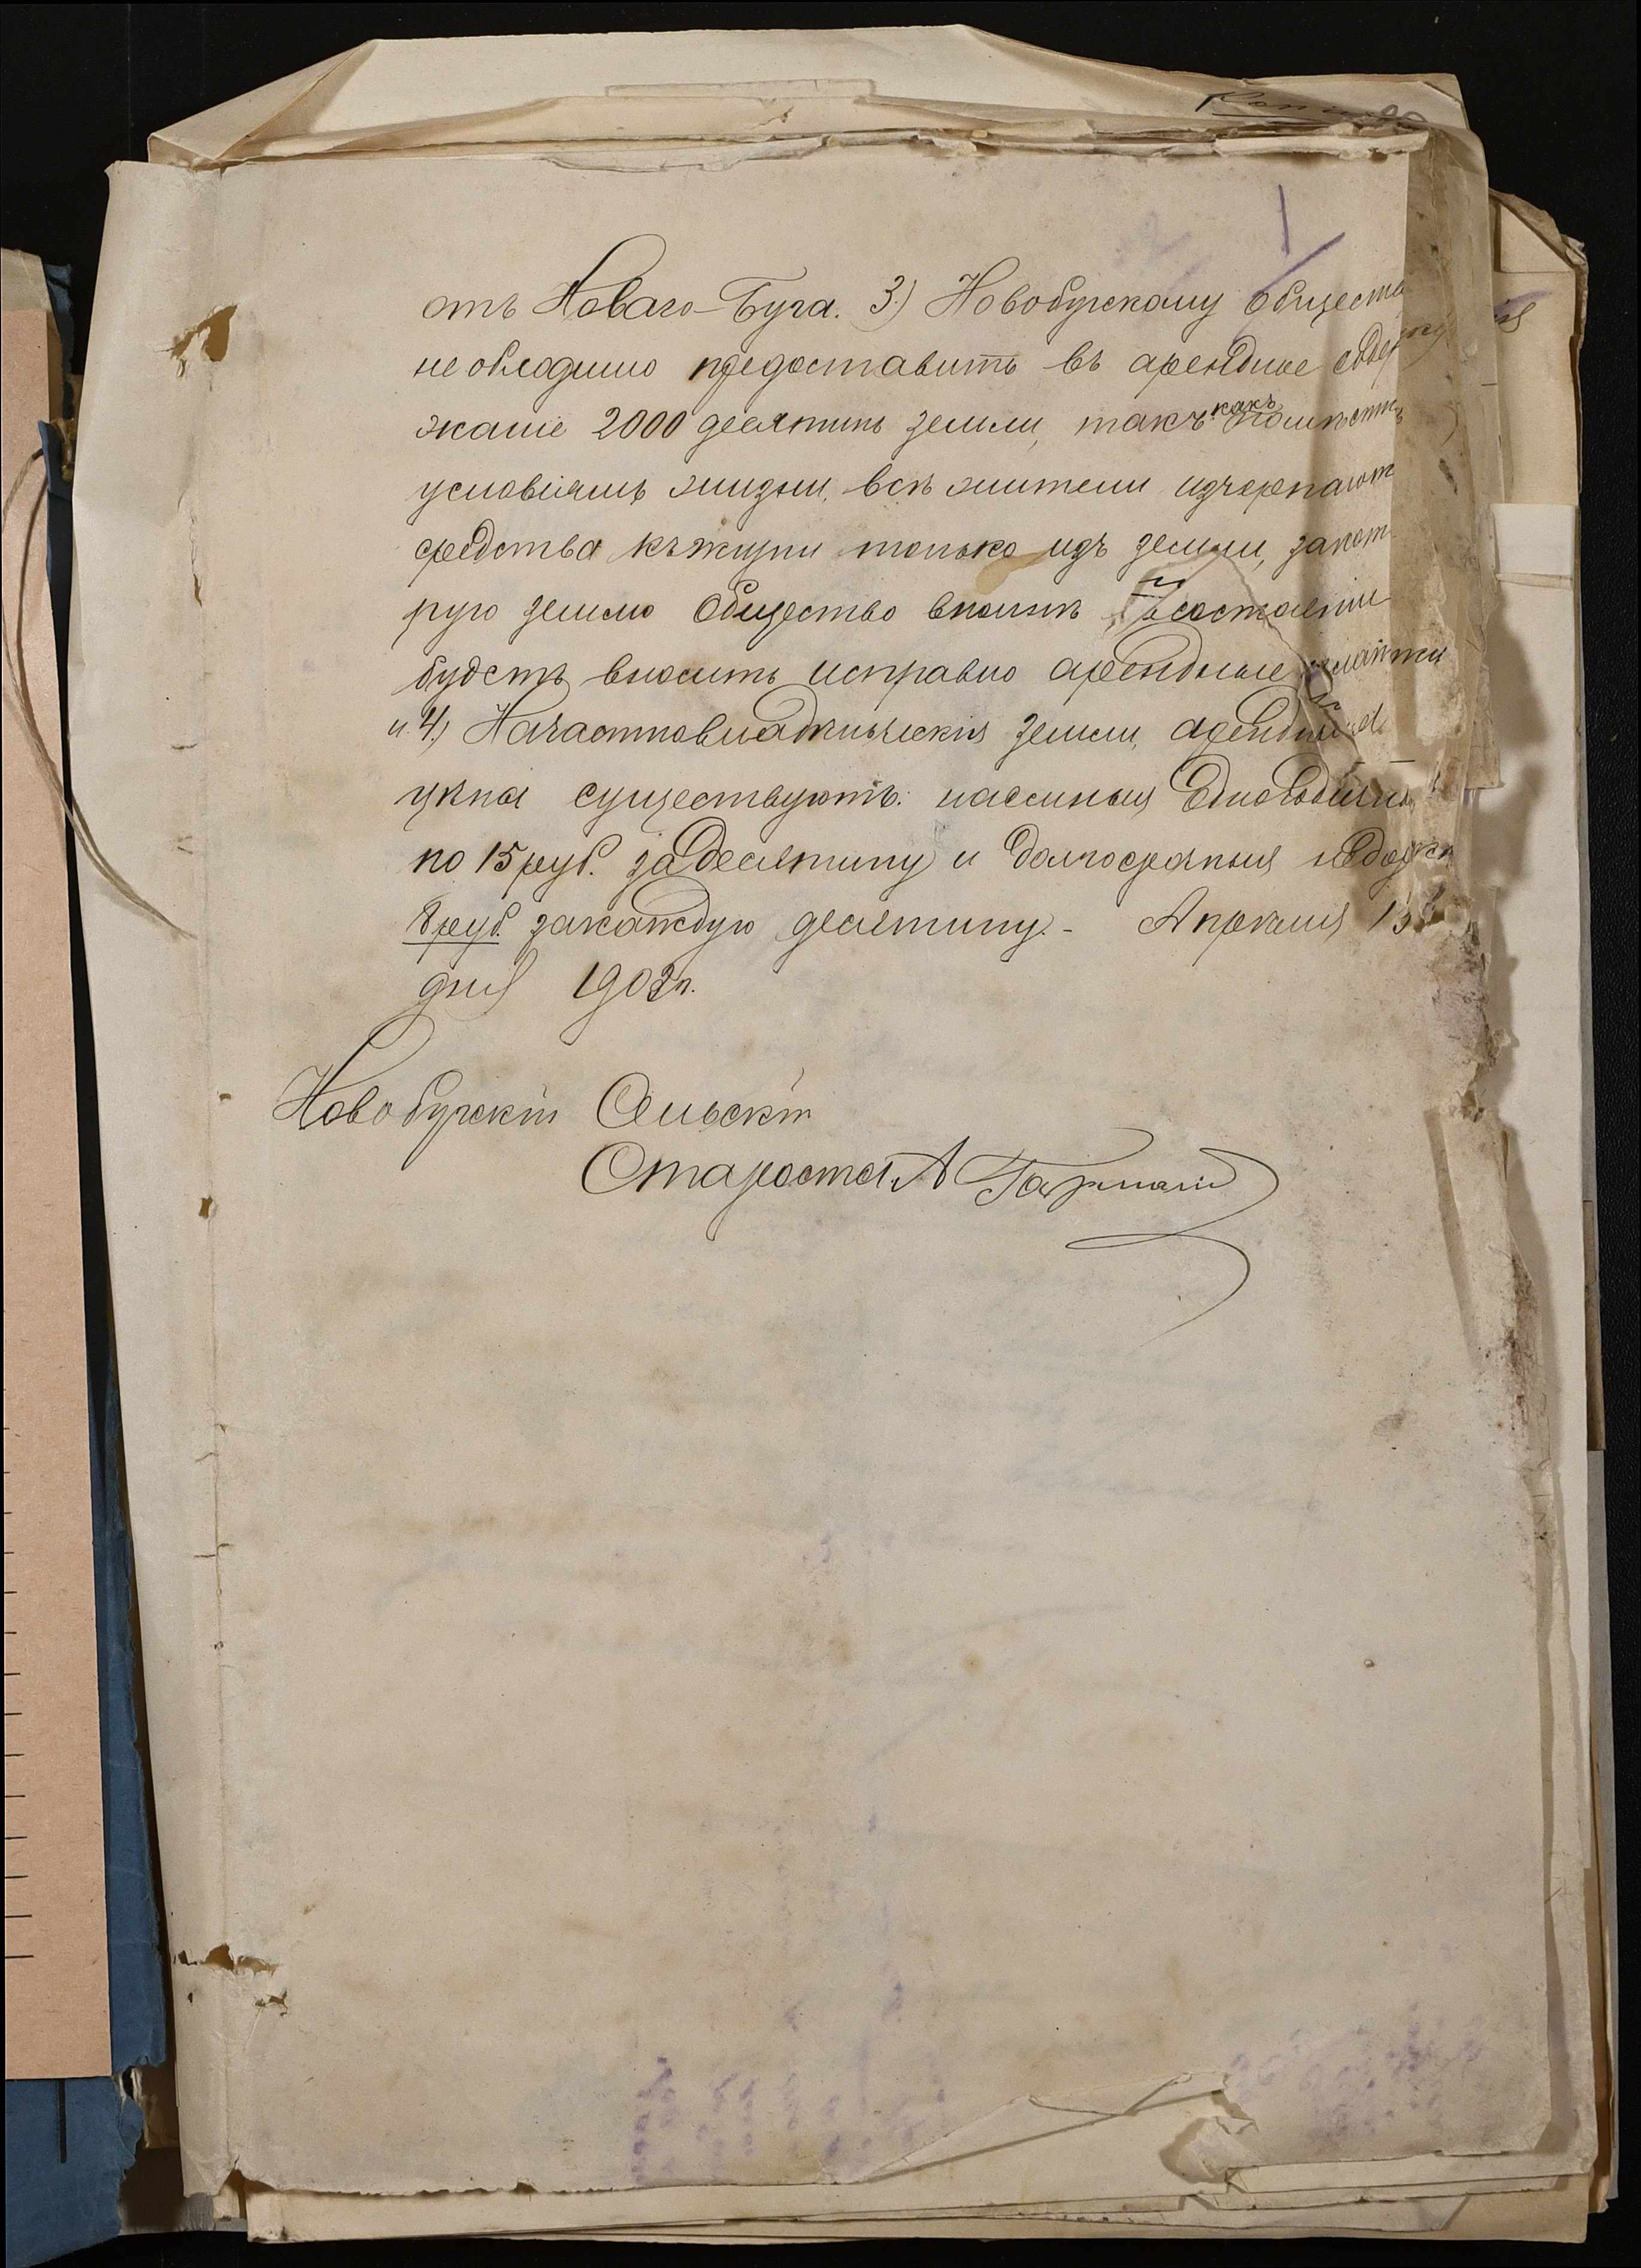 отъ Новаго-Буга. 3) Новобугскому обществу
необходимо предоставить въ арендное содер
жаніе 2000 десятинъ земли, такъ какъ помѣстн
условіямъ жизни, всѣ жители изчерпают
средства къжизни только изъ земли, закот
рую землю Общество вполнѣ въ состояніи
будетъ вносить исправно арендные
и 4) Начастновладѣльческія земли, арендные
цѣны существуютъ: насиныя Одногодичны
по 15 руб. задесятину и долгосрочныя недороже
8 руб. закаждую десятину.- Апрѣля 15
дня 1902 г.
Новобугскій Сельскій
Староста А